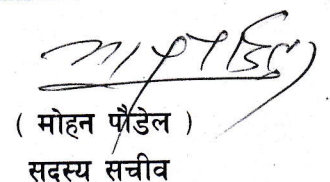 ( मोहन पौडेल )
सदस्य सचीव